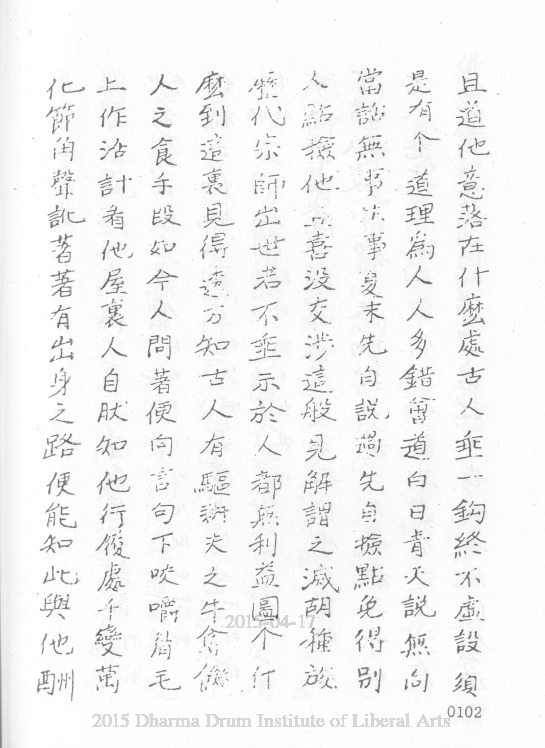 且道他意落在什麼處古人垂一鈎終不虛設須
是有个道理爲人人多錯會道白日青天說無向
當話無事生事夏末先自說過先自撿點免得別
人點撿他且喜沒交涉這般見解謂之滅胡種族
歷代宗師出世若不垂示於人都無利益圖个什
麼到這裏見得透方知古人有驅耕夫之牛奪飢
人之食手段如今人問著便向言句下咬嚼眉毛
上作活計看他屋裏人自肰知他行履處千變萬
化節角聱訛著著有出身之路便能如此與他酬
2015-04-17
0102
2015 Dharma Drum Institute of Liberal Arts